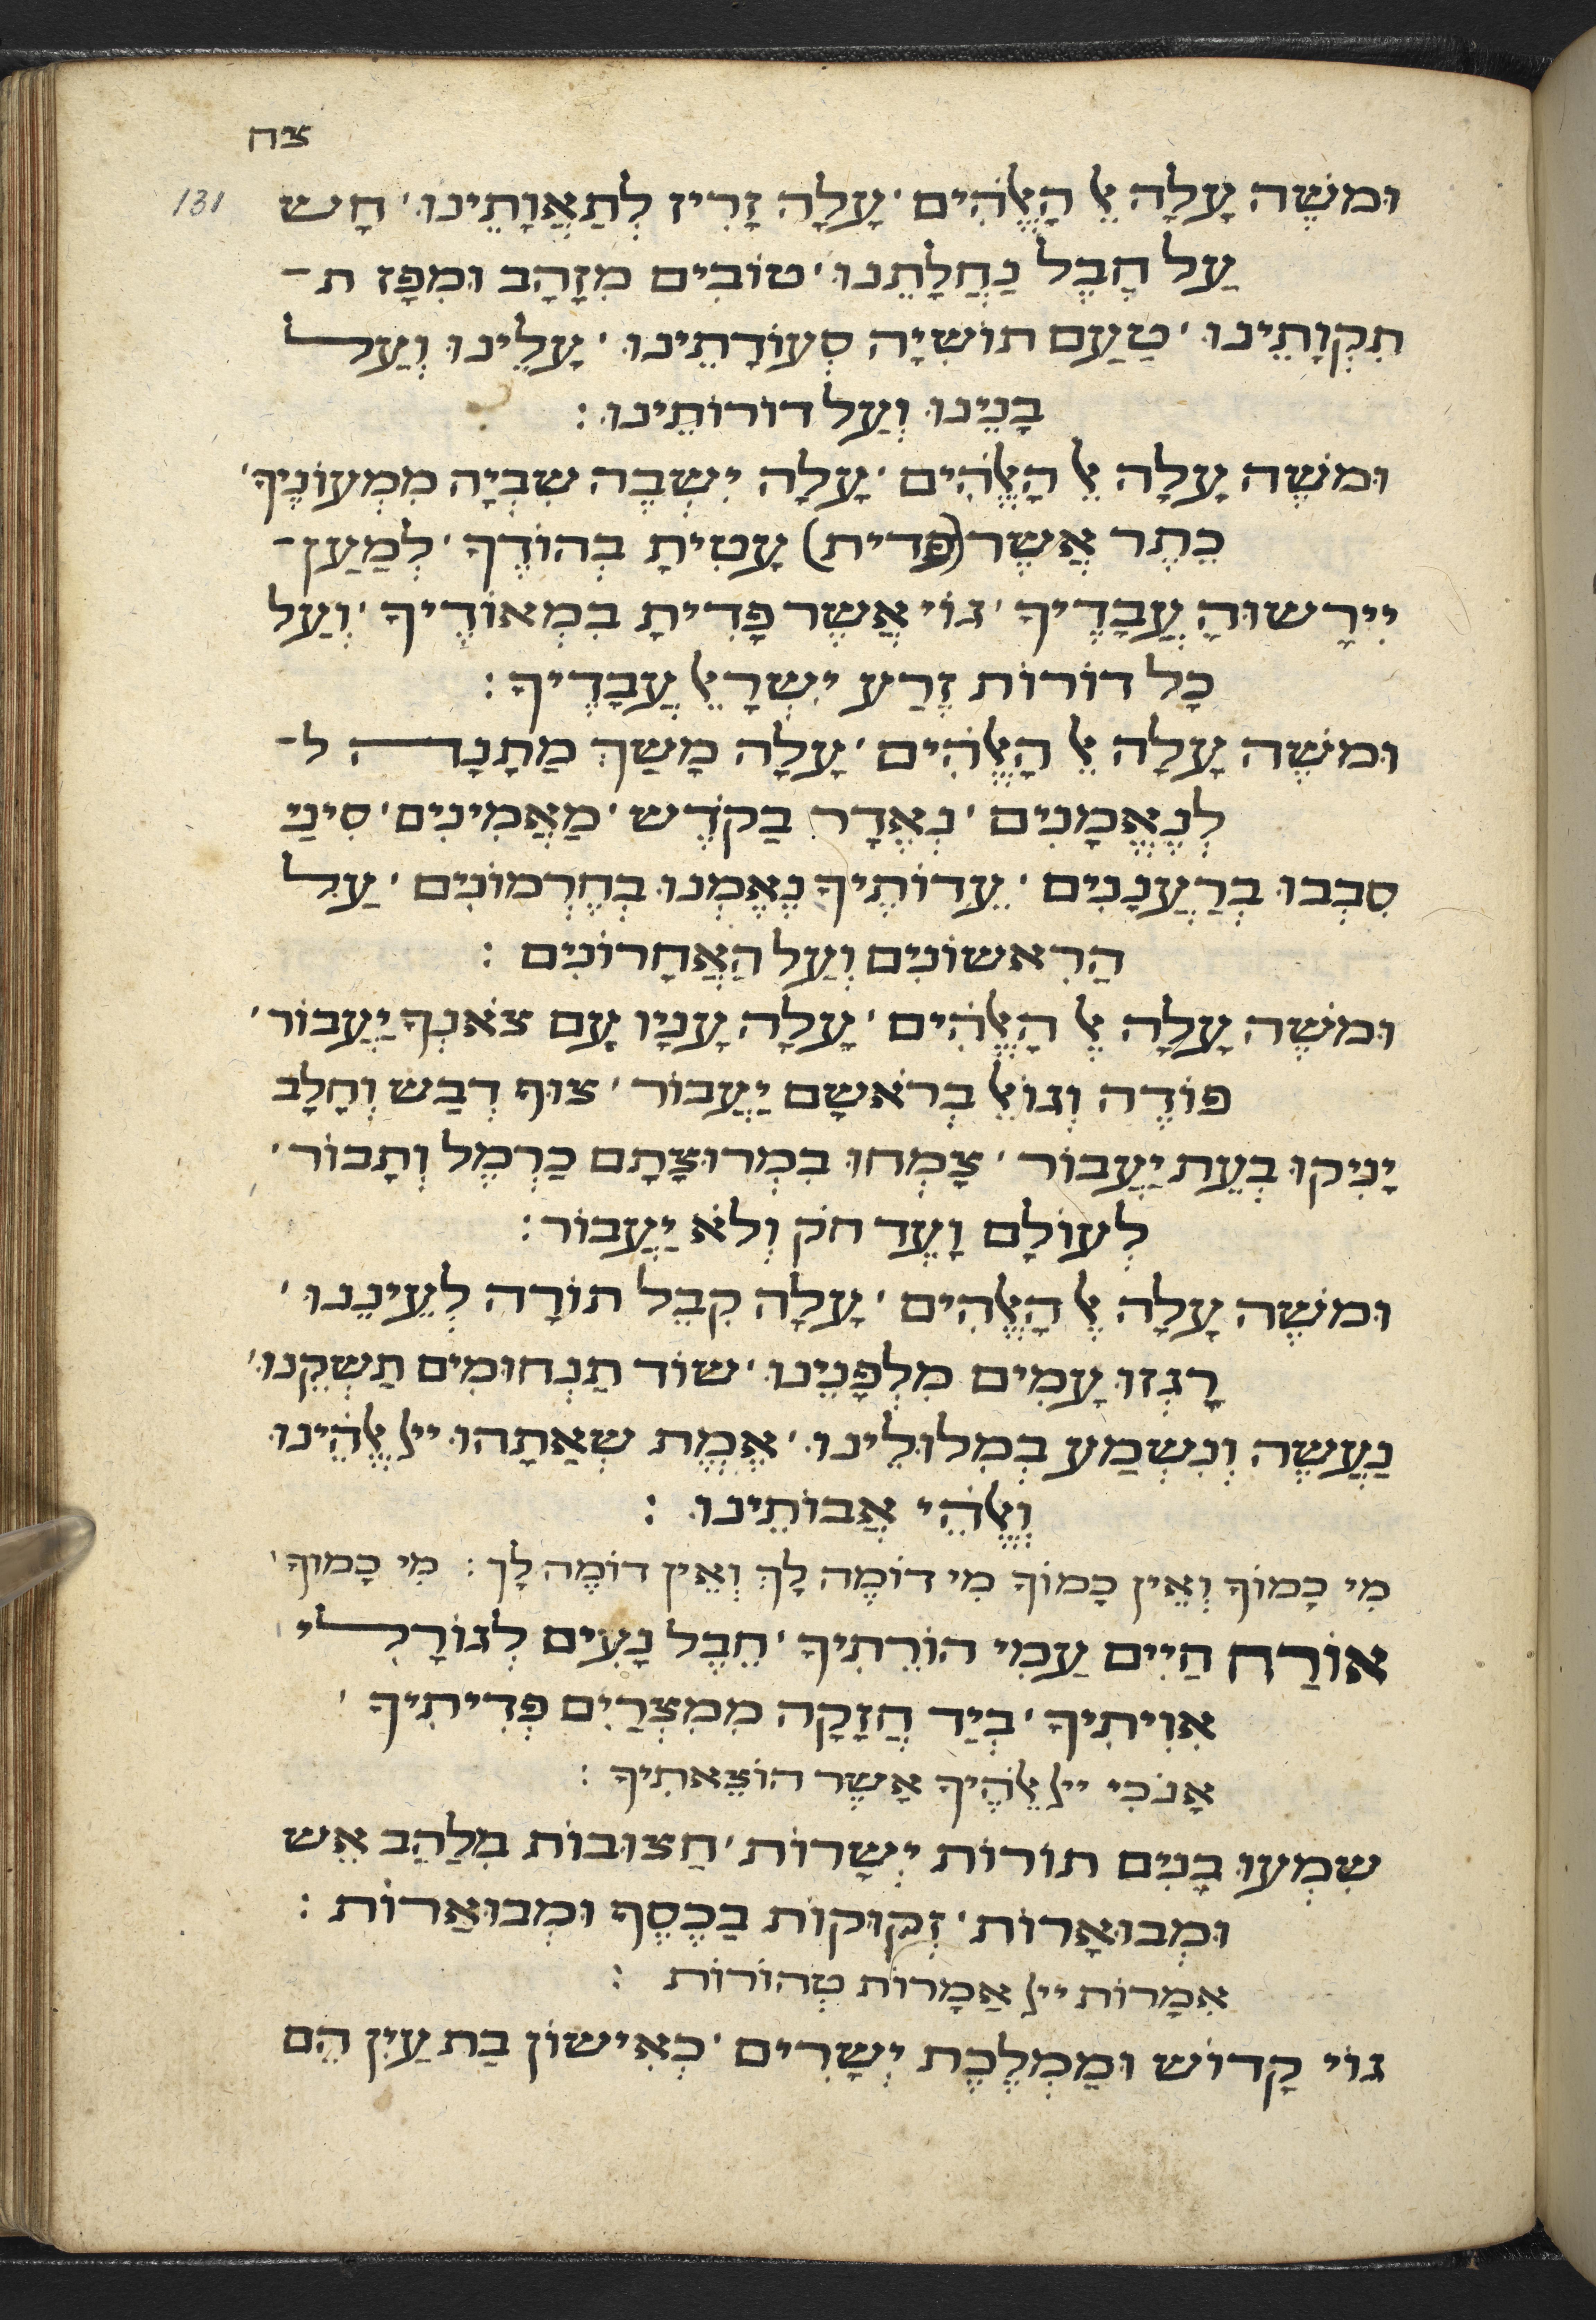 צח
131
וּמֹשֶׁה עָלָה אֶל הָאֱלֹהִים ׳ עָלָה זָרִיז לְתַאֲוָתֵינוּ ׳ חָשׁ
עַל חֶבֶל נַחֲלָתֵנוּ ׳ טוֹבִים מִזָהָב וּמִפָּז ת־
תִקְוָתֵינוּ ׳ טַעַם תוּשִׁיָה סְעוּדָתֵינוּ ׳ עָלֵינוּ וְעַל
בָּנֵינוּ וְעַל דוֹרוֹתֵינוּ :
וּמֹשֶׁה עָלָה אֶל הָאֱלֹהִים ׳ עָלָה יִשְׁבֶּה שִׁבְיָה מִמְעוֹנֶיךָ ׳
כֶּתֶר אֲשֶׁר (פדית) עָטִיתָ בְהוֹדֶךָ ׳ לְמַעַן־
יִירָשׁוּהָ עֲבָדֶיךָ ׳ גוֹי אֲשֶׁר פָּדִיתָ בִמְאוֹדֶיךָ ׳ וְעַל
כָּל דוֹרוֹת זֶרַע יִשְׂרָאֵל עֲבָדֶיךָ :
וּמֹשֶׁה עָלָה אֶל הָאֱלֹהִים ׳ עָלָה מָשַׁךְ מַתָנָה ל־
לְנֶאֱמָנִים ׳ נֶאְדָר בַּקֹדֶשׁ ׳ מַאֲמִינִים ׳ סִינַי
סִבְבוּ בְּרַעֲנָנִים ׳ עֵדוֹתֶיךָ נֶאֶמְנוּ בְּחֶרְמוֹנִים ׳ עַל
הָרִאשׁוֹנִים וְעַל הָאַחֲרוֹנִים :
וּמֹשֶׁה עָלָה אֶל הָאֱלֹהִים ׳ עָלָה עָנָיו עִם צֹאנְךָ יַעֲבוֹר ׳
פּוֹדֶה וְגוֹאֵל בְרֹאשָׁם יַעֲבוֹר ׳ צוּף דְבַשׁ וְחָלָב
יָנִיקוּ בְּעֵת יַעֲבוֹר ׳ צָמְחוּ בִּמְרוּצָתָם כַרְמֶל וְתָבוֹר ׳
לְעוֹלָם וָעֶד חֹק וְלֹא יַעֲבוֹר :
וּמֹשֶׁה עָלָה אֶל הָאֱלֹהִים ׳ עָלָה קִבֵּל תּוֹרָה לְעֵינֵנוּ ׳
רָגְזוּ עַמִים מִלְפָנֵינוּ ׳ שׁוֹד תַּנְחוּמִים תַשְׁקֵנוּ ׳
נַעֲשֶׂה וְנִשְׁמַע בְּמִלוּלֵינוּ ׳ אֱמֶת שְׁאַתָהוּ ייי אֱלֹהֵינוּ
וֶאֱלֹהֵי אֲבוֹתֵינוּ :
מִי כָמוֹךָ וְאֵין כָּמוֹךָ מִי דוֹמֶה לָךְ וְאֵין דוֹמֶה לָךְ : מִי כָמוֹךָ ׳
אוֹרַח חַיִים עַמִי הוֹרֵתִיךָ ׳ חֶבֶל נָעִים לְגוֹרָלִי
אִוִיתִיךָ ׳ בְּיַד חֲזָקָה מִמִצְרַיִם פְּדִיתִיךָ ׳
אָנֹכִי ייי אֱלֹהֶיךָ אֲשֶׁר הוֹצֵאתִיךָ :
שִׁמְעוּ בָנִים תּוֹרוֹת יְשָׁרוֹת ׳ חַצוּבוֹת מִלַהַב אֵשׁ
וּמְבוּאָרוֹת ׳ זְקוּקוֹת בַּכֶסֶף וּמְבוּאַרוֹת :
אִמָרוֹת ייי אַמָרוֹת טְהוֹרוֹת :
גוֹי קָדוֹשׁ וּמַמְלֶכֶת יְשָׁרִים ׳ כְּאִישׁוֹן בַּת עַיִן הֵם